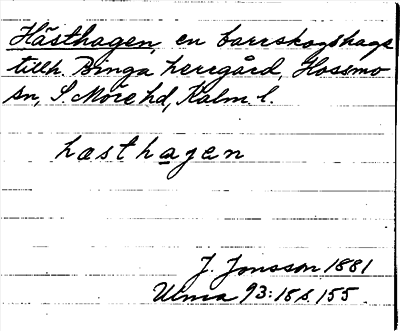 Hästhagen en barrskogshage
tillh. Binga herrgård, Hossmo
sn, S. Möre hd, Kalm. l.
hästhagen
J. Jonsson 1881
Ulma 93:18 s. 155